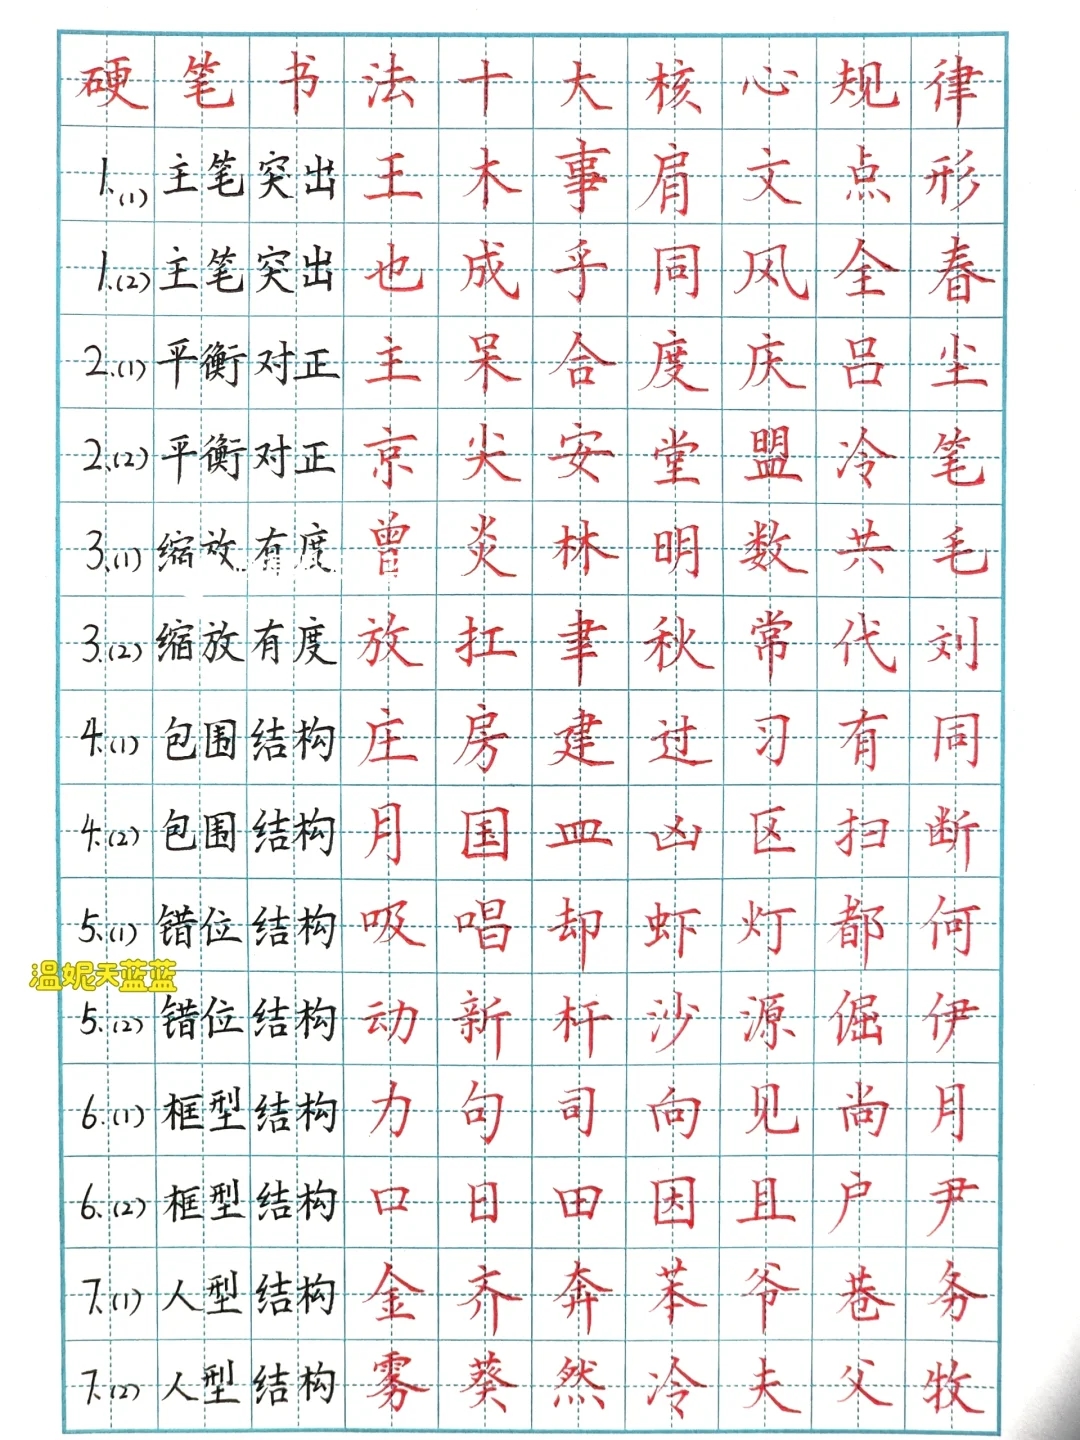 硬笔书法十大核心规律
1.(1) 主笔突出 王木事肩文点形
1.(2) 主笔突出 也成乎同风全春
2.(1) 平衡对正 主呆合度庆吕尘
2.(2) 平衡对正 京尖安堂盟冷笔
3.(1) 缩放有度 曾炎林明数共毛
3.(2) 缩放有度 放扛聿秋常代刘
4.(1) 包围结构 庄房建过习有同
4.(2) 包围结构 月国皿凶区扫断
5.(1) 错位结构 吸唱却虾灯都何
温妮天蓝蓝
5.(2) 错位结构 动新杆沙源倔伊
6.(1) 框型结构 力句司向见尚月
6.(2) 框型结构 口日田因且户尹
7.(1) 人型结构 金齐奔苯爷巷务
7.(2) 人型结构 雾葵然冷夫父牧